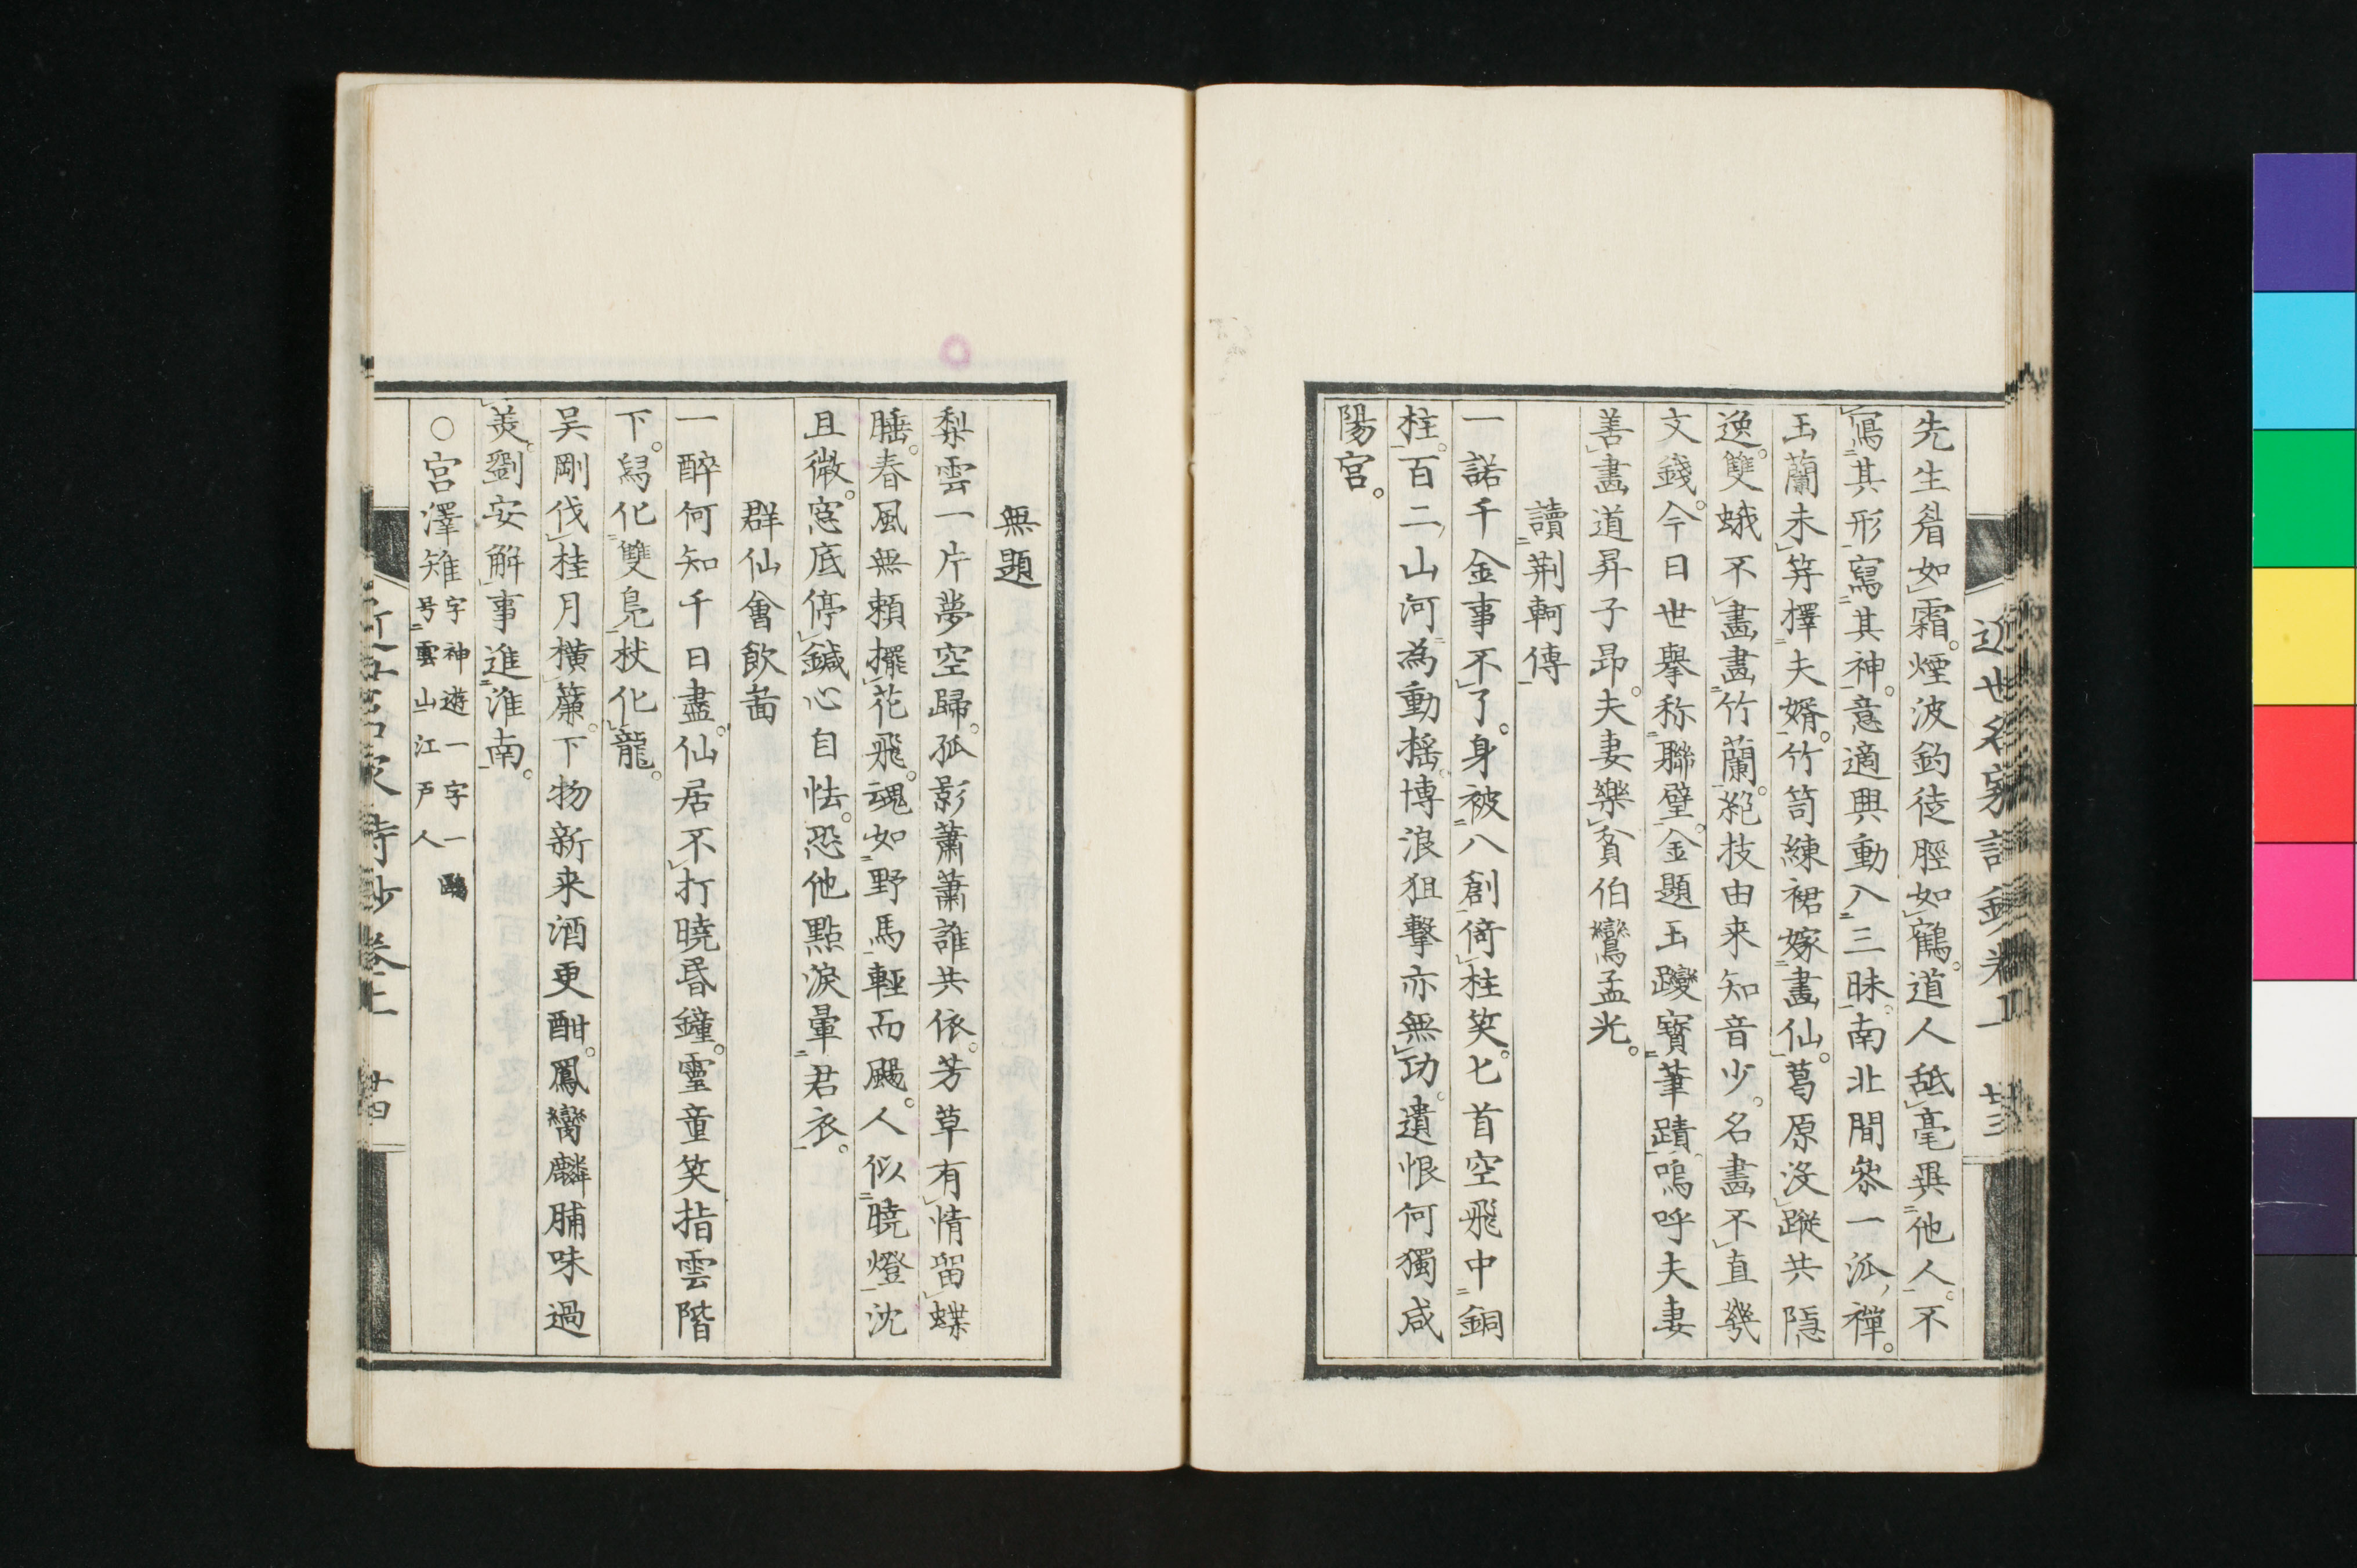 近世名家詩鈔卷上 廿三
先生眉如霜。煙波釣徒脛如鶴。道人舐毫異他人。不
寫其形寫其神。意適興動入三昧。南北間參一派禪。
玉蘭未筓擇夫婿。竹笥練裙嫁畫仙。葛原沒蹤共隱
逸。雙蛾不畫畫竹蘭。絕技由来知音少。名畫不直幾
文錢。今日世擧称聯璧。金題玉躞寶筆蹟。嗚呼夫妻
善畫道昇子昂。夫妻樂貧伯鸞孟光。
讀荊軻傳
一諾千金事不了。身被八創倚柱笑。匕首空飛中銅
柱。百二山河為動搖。博浪狙擊亦無功。遺恨何獨咸
陽宮。
無題
梨雲一片夢空歸。孤影蕭蕭誰共依。芳草有情留蝶
睡。春風無賴擺花飛。魂如野馬輕而颺。人似曉燈沈
且微。窓底停鍼心自怯。恐他點淚暈君衣。
群仙會飲啚
一醉何知千日盡。仙居不打曉昏鐘。靈童笑指雲階
下。舄化雙鳬杖化龍。
吴剛伐桂月横簾。下物新来酒更酣。鳳臠麟脯味過
羙。劉安解事進淮南。
○宮澤雉 字神遊一字一鷗
号雲山江戸人
近世名家詩鈔卷上 廿四